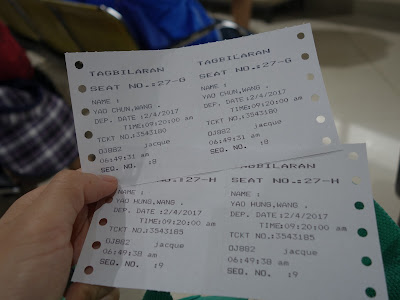 TAGBILARAN TAGBILARAN
SEAT NO.:27-G SEAT NO.:27-G
NAME : NAME :
YAO CHUN,WANG . YAO CHUN,WANG .
DEP. DATE:2/4/2017 DEP. DATE:2/4/2017
TIME:09:20:00 am TIME:09:20:00 am
TCKT NO.:3543180 TCKT NO.:3543180
OJ882 jacque OJ882 jacque
06:49:31 am 06:49:31 am
SEQ. NO. :8 SEQ. NO. :8
TAGBILARAN
NO.:27-H SEAT NO.:27-H
NAME : NAME :
YAO HUNG,WANG. YAO HUNG,WANG.
DEP. DATE:2/4/2017 DEP. DATE :2/4/2017
TIME:09:20:00 am TIME:09:20:00 am
TCKT NO.:3543185 TCKT NO.:3543185
OJ882 jacque OJ882 jacque
06:49:38 am 06:49:38 am
SEQ. NO. :9 SEQ. NO. :9